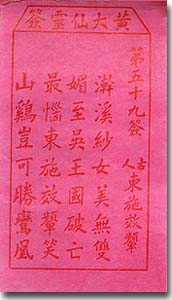 黃大仙靈簽
第五十九簽
古人 東施效顰
澣溪紗女美無雙
媚至吳王國破亡
最惱東施效顰笑
山鷄豈可勝鸞鳳